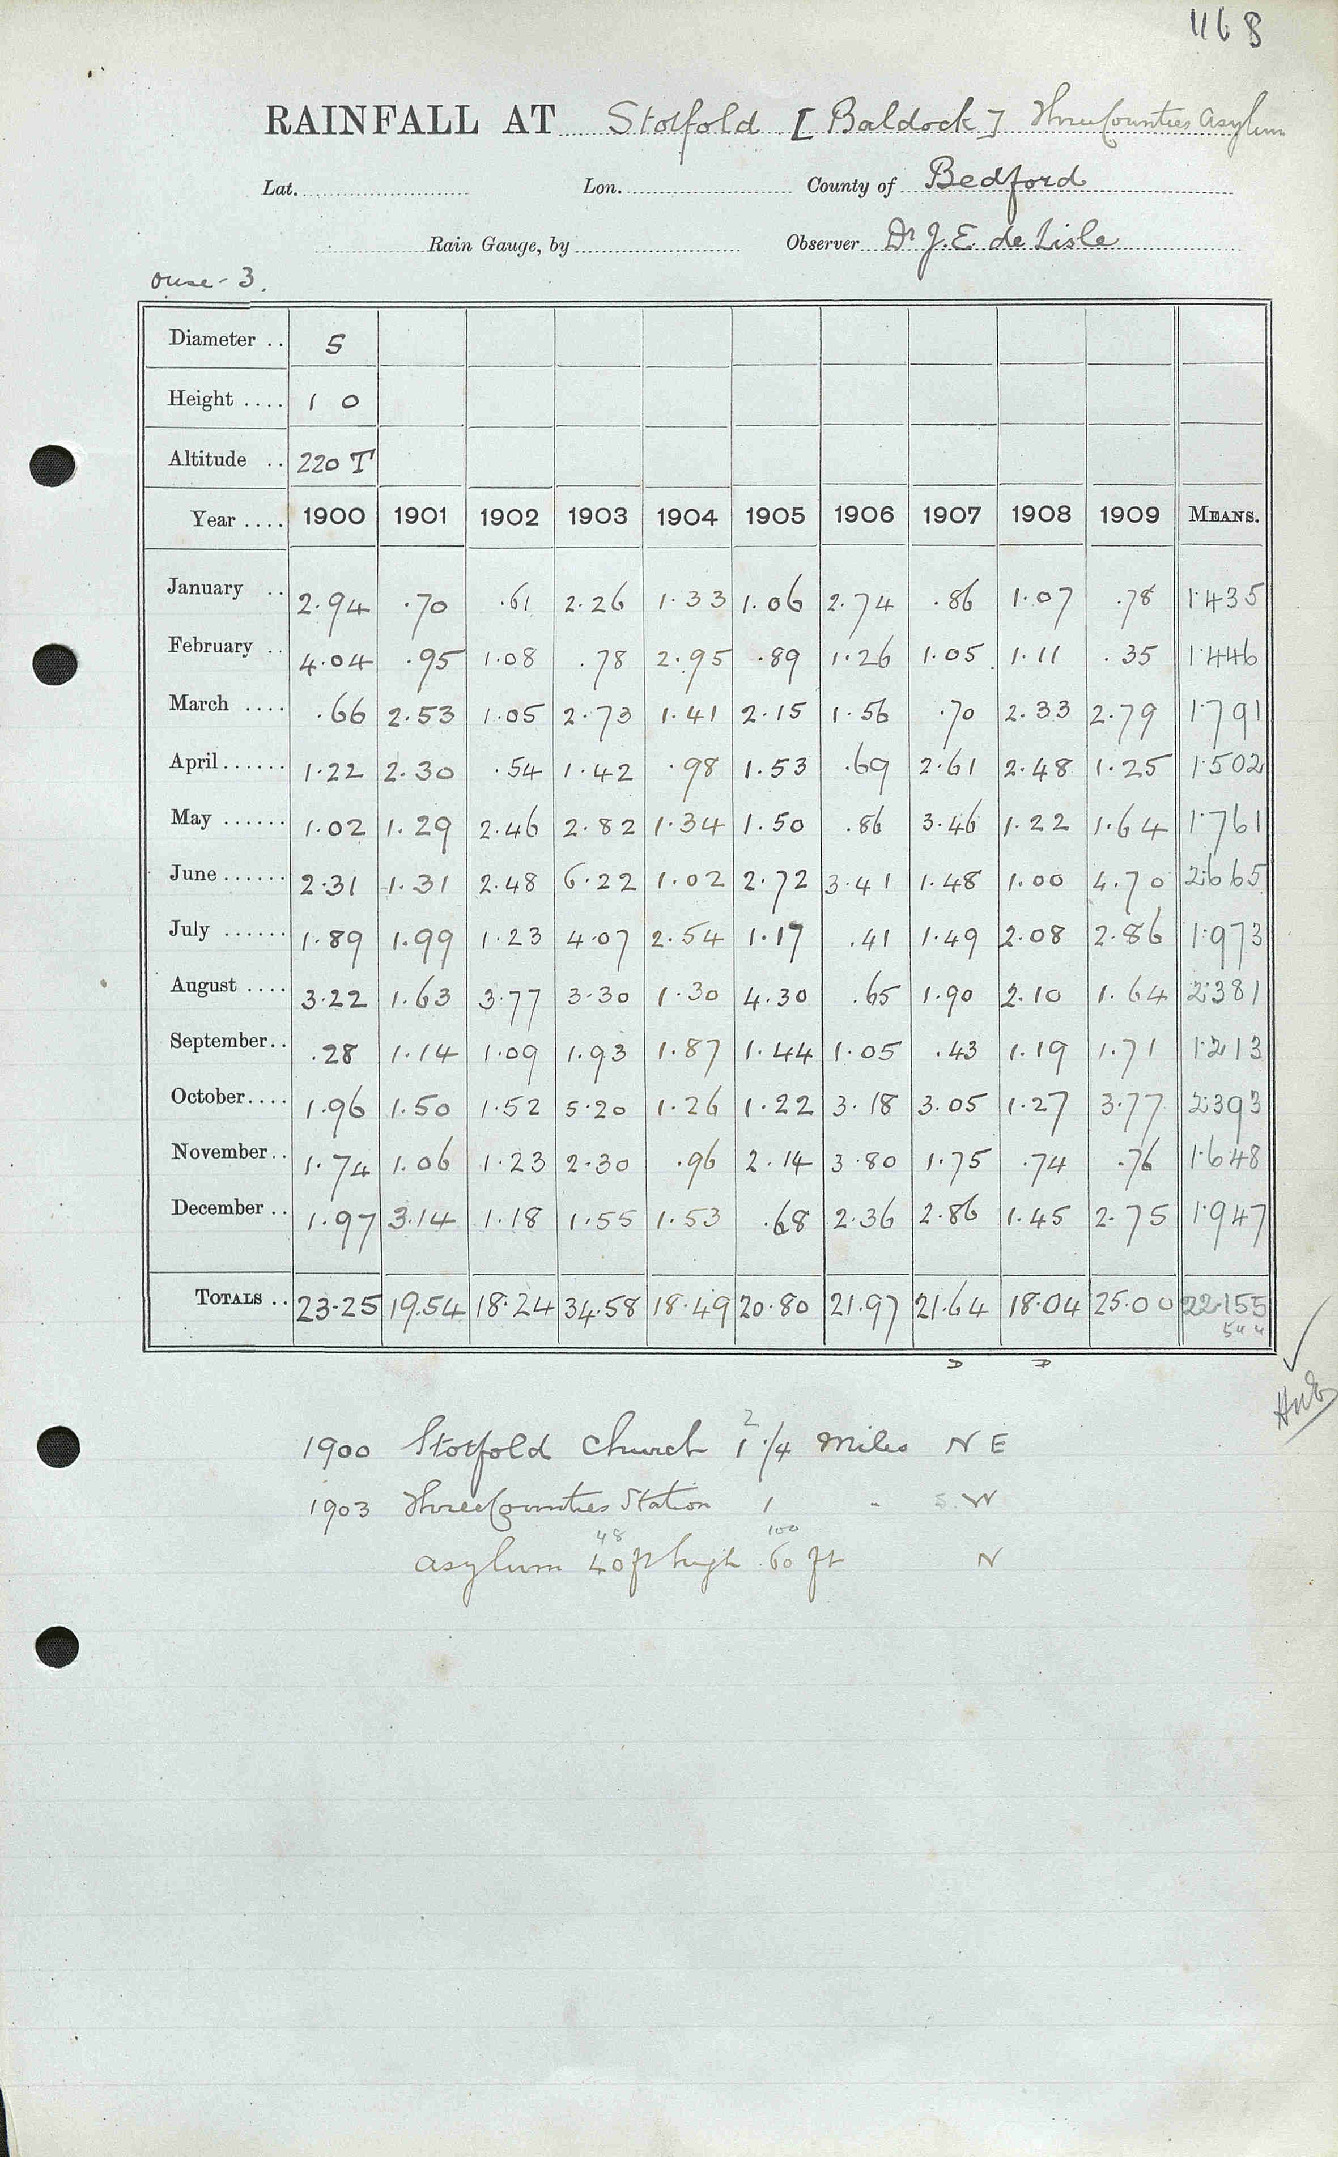 1168
RAINFALL AT Stotfold [Baldock] Three Counties Asylum
Lat. Lon. County of Bedford
Rain Gauge, by Observer Dr J. E. de Lisle
Ouse - 3.
Diameter .. 5
Height .... 1 0
Altitude .. 220 T
Year .... 1900 1901 1902 1903 1904 1905 1906 1907 1908 1909 MEANS.
January .. 2.94 .70 .61 2.26 1.33 1.06 2.74 .86 1.07 .78 1.435
February .. 4.04 .95 1.08 .78 2.95 .89 1.26 1.05 1.11 .35 1.446
March .... .66 2.53 1.05 2.73 1.41 2.15 1.56 .70 2.33 2.79 1.791
April...... 1.22 2.30 .54 1.42 .98 1.53 .69 2.61 2.48 1.25 1.502
May ...... 1.02 1.29 2.46 2.82 1.34 1.50 .86 3.46 1.22 1.64 1.761
June...... 2.31 1.31 2.48 6.22 1.02 2.72 3.41 1.48 1.00 4.70 2.665
July ...... 1.89 1.99 1.23 4.07 2.54 1.17 .41 1.49 2.08 2.86 1.973
August .... 3.22 1.63 3.77 3.30 1.30 4.30 .65 1.90 2.10 1.64 2.381
September.. .28 1.14 1.09 1.93 1.87 1.44 1.05 .43 1.19 1.71 1.213
October.... 1.96 1.50 1.52 5.20 1.26 1.22 3.18 3.05 1.27 3.77 2.393
November.. 1.74 1.06 1.23 2.30 .96 2.14 3.80 1.75 .74 .76 1.648
December .. 1.97 3.14 1.18 1.55 1.53 .68 2.36 2.86 1.45 2.75 1.947
TOTALS .. 23.25 19.54 18.24 34.58 18.49 20.80 21.97 21.64 18.04 25.00 22.155
D D
2
1900 Stotfold Church 1 1/4 miles N E
1903 Three Counties Station 1 " S.W
48 100
Asylum 40 ft high 60 ft N